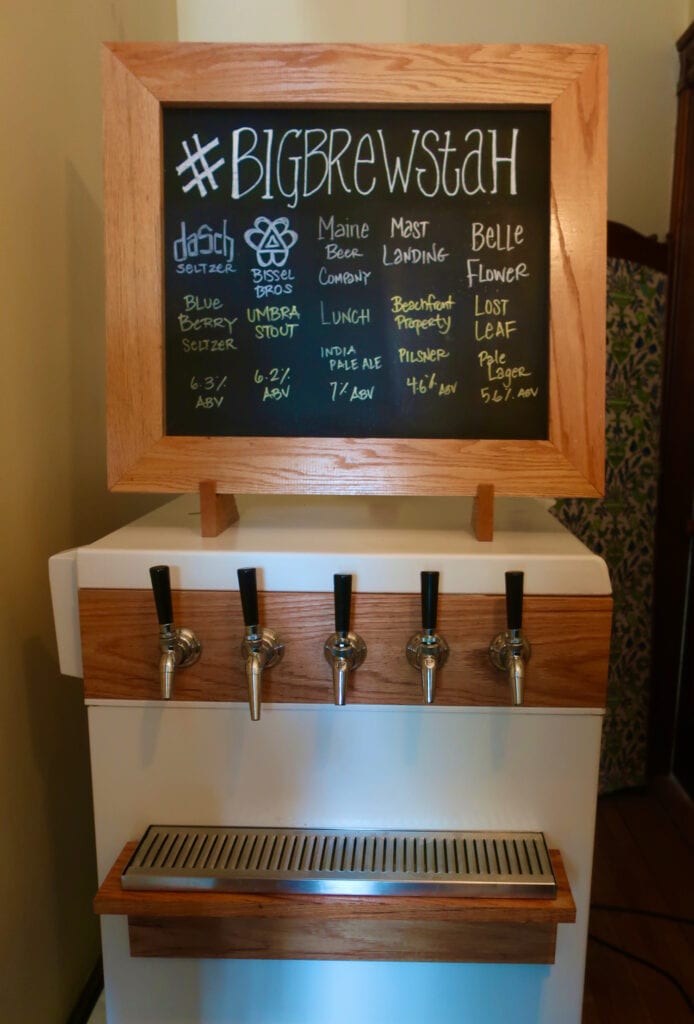 #BIGBREWSTAH
dasch
SELTZER
BLUE
BERRY
SELTZER
6.3% 
ABV
BISSEL
BROS
UMBRA
STOUT
6.2%
ABV
Maine
BEER
COMPANY
LUNCH
INDIA
PALE ALE
7% ABV
MAST
LANDING
Beachfront
Property
PILSNER
4.6% ABV
BELLE
FLOWER
LOST
LEAF
Pale
Lager
5.6% ABV